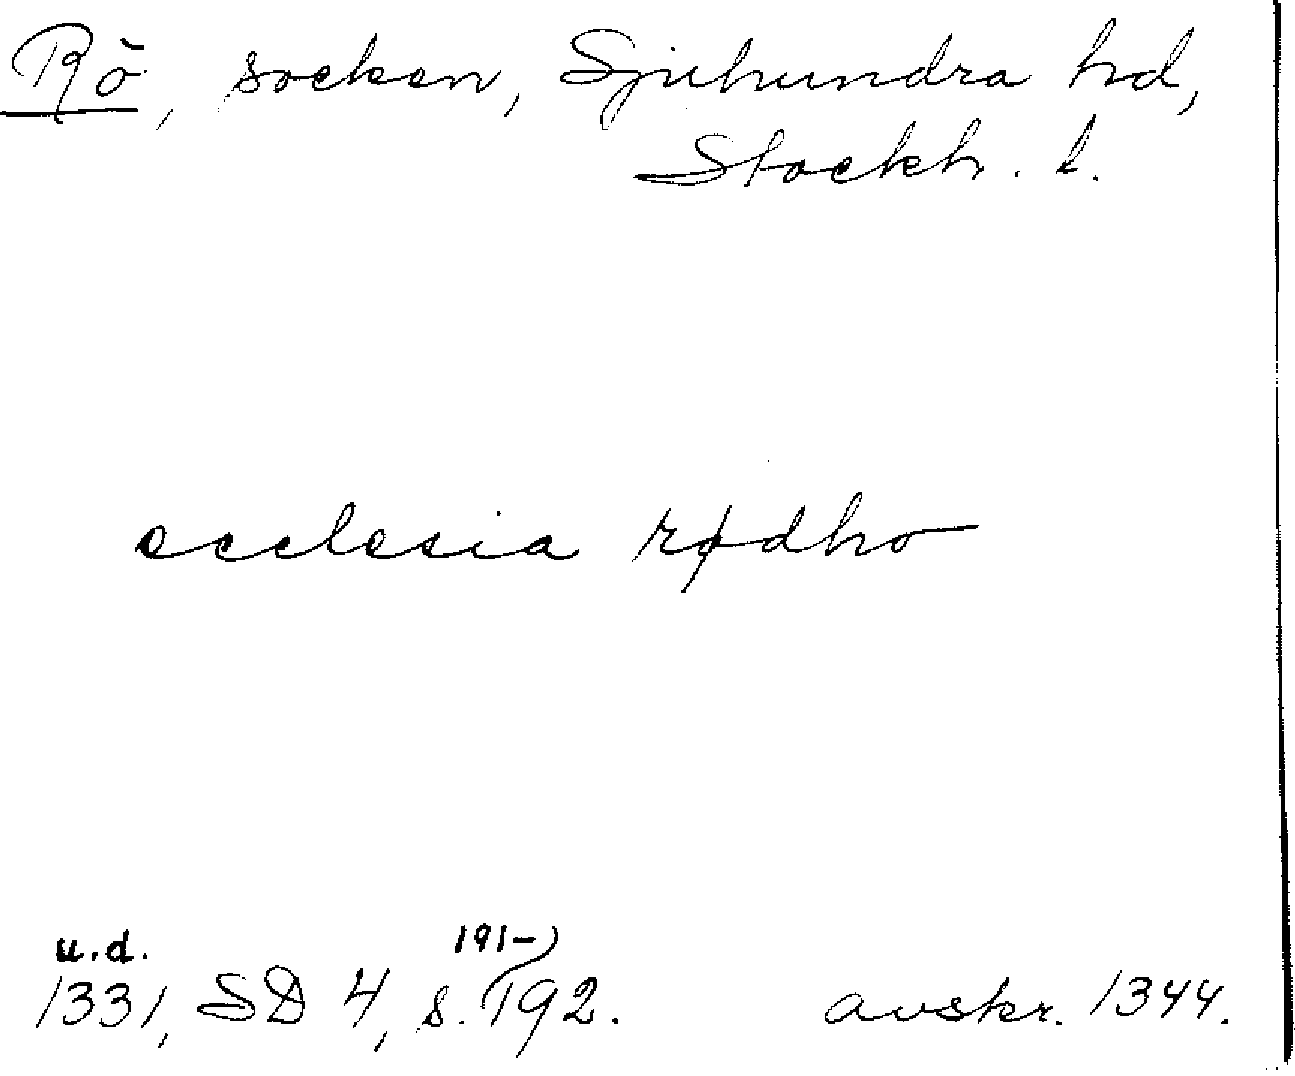 Rö, socken, Sjuhundra hd,
Stockh. l.
ecclesia rødho
u.d. 191-)
1331, SD 4, s. 192. avskr. 1344.